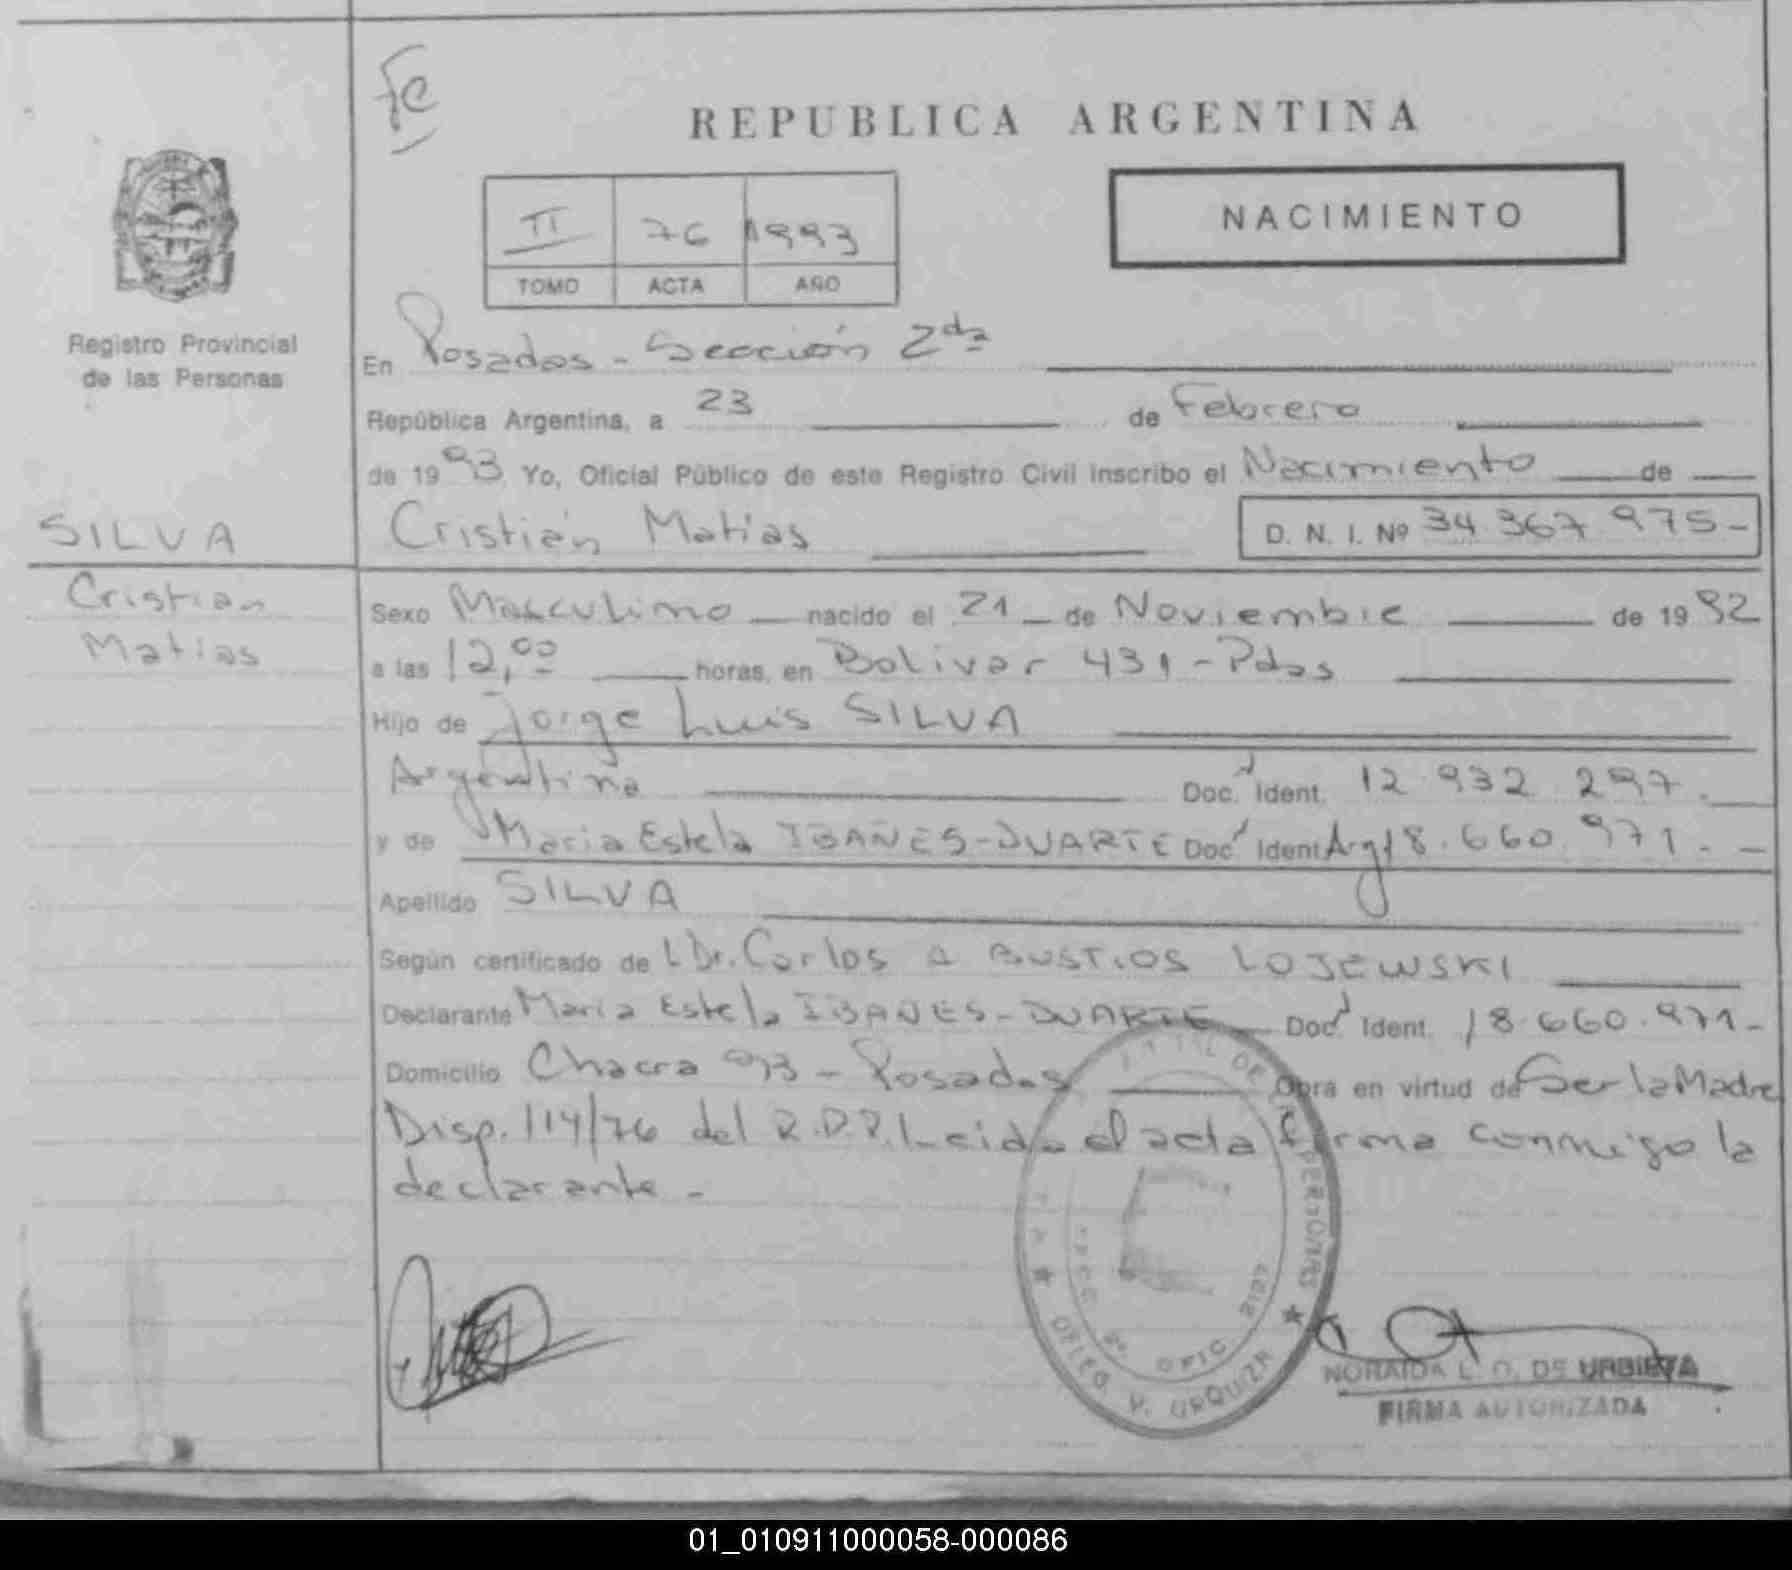 Fe
REPUBLICA ARGENTINA
II 76 1993
TOMO ACTA AÑO
NACIMIENTO
Registro Provincial
de las Personas
En Posadas - Sección 2da
República Argentina, a 23 de Febrero
de 1993 Yo, Oficial Público de este Registro Civil inscribo el Nacimiento de
SILVA
Cristián Matías
D. N. I. Nº 34.367.975-
Cristian
Matias
Sexo Masculino nacido el 21 de Noviembre de 1992
a las 12,00 horas, en Bolivar 431 - Pdas
Hijo de Jorge Luis SILVA
Argentina Doc. Ident. 12.932.297.
y de Maria Estela IBAÑES-DUARTE Doc Ident Arg 18.660.971.-
Apellido SILVA
Según certificado de l Dr. Carlos A BUSTIOS LOJEWSKI
Declarante Maria Estela IBAÑES-DUARTE Doc. Ident. 18.660.971-
Domicilio Chacra 93 - Posadas Obra en virtud de Ser la Madre
Disp. 114/76 del R.P.P. Leida el acta firma conmigo la
declarante -
DE PERSONAS
2º OFIC 2127
DELEG. V. URQUIZA
NORAIDA L. O. DE URBIETA
FIRMA AUTORIZADA
01_010911000058-000086